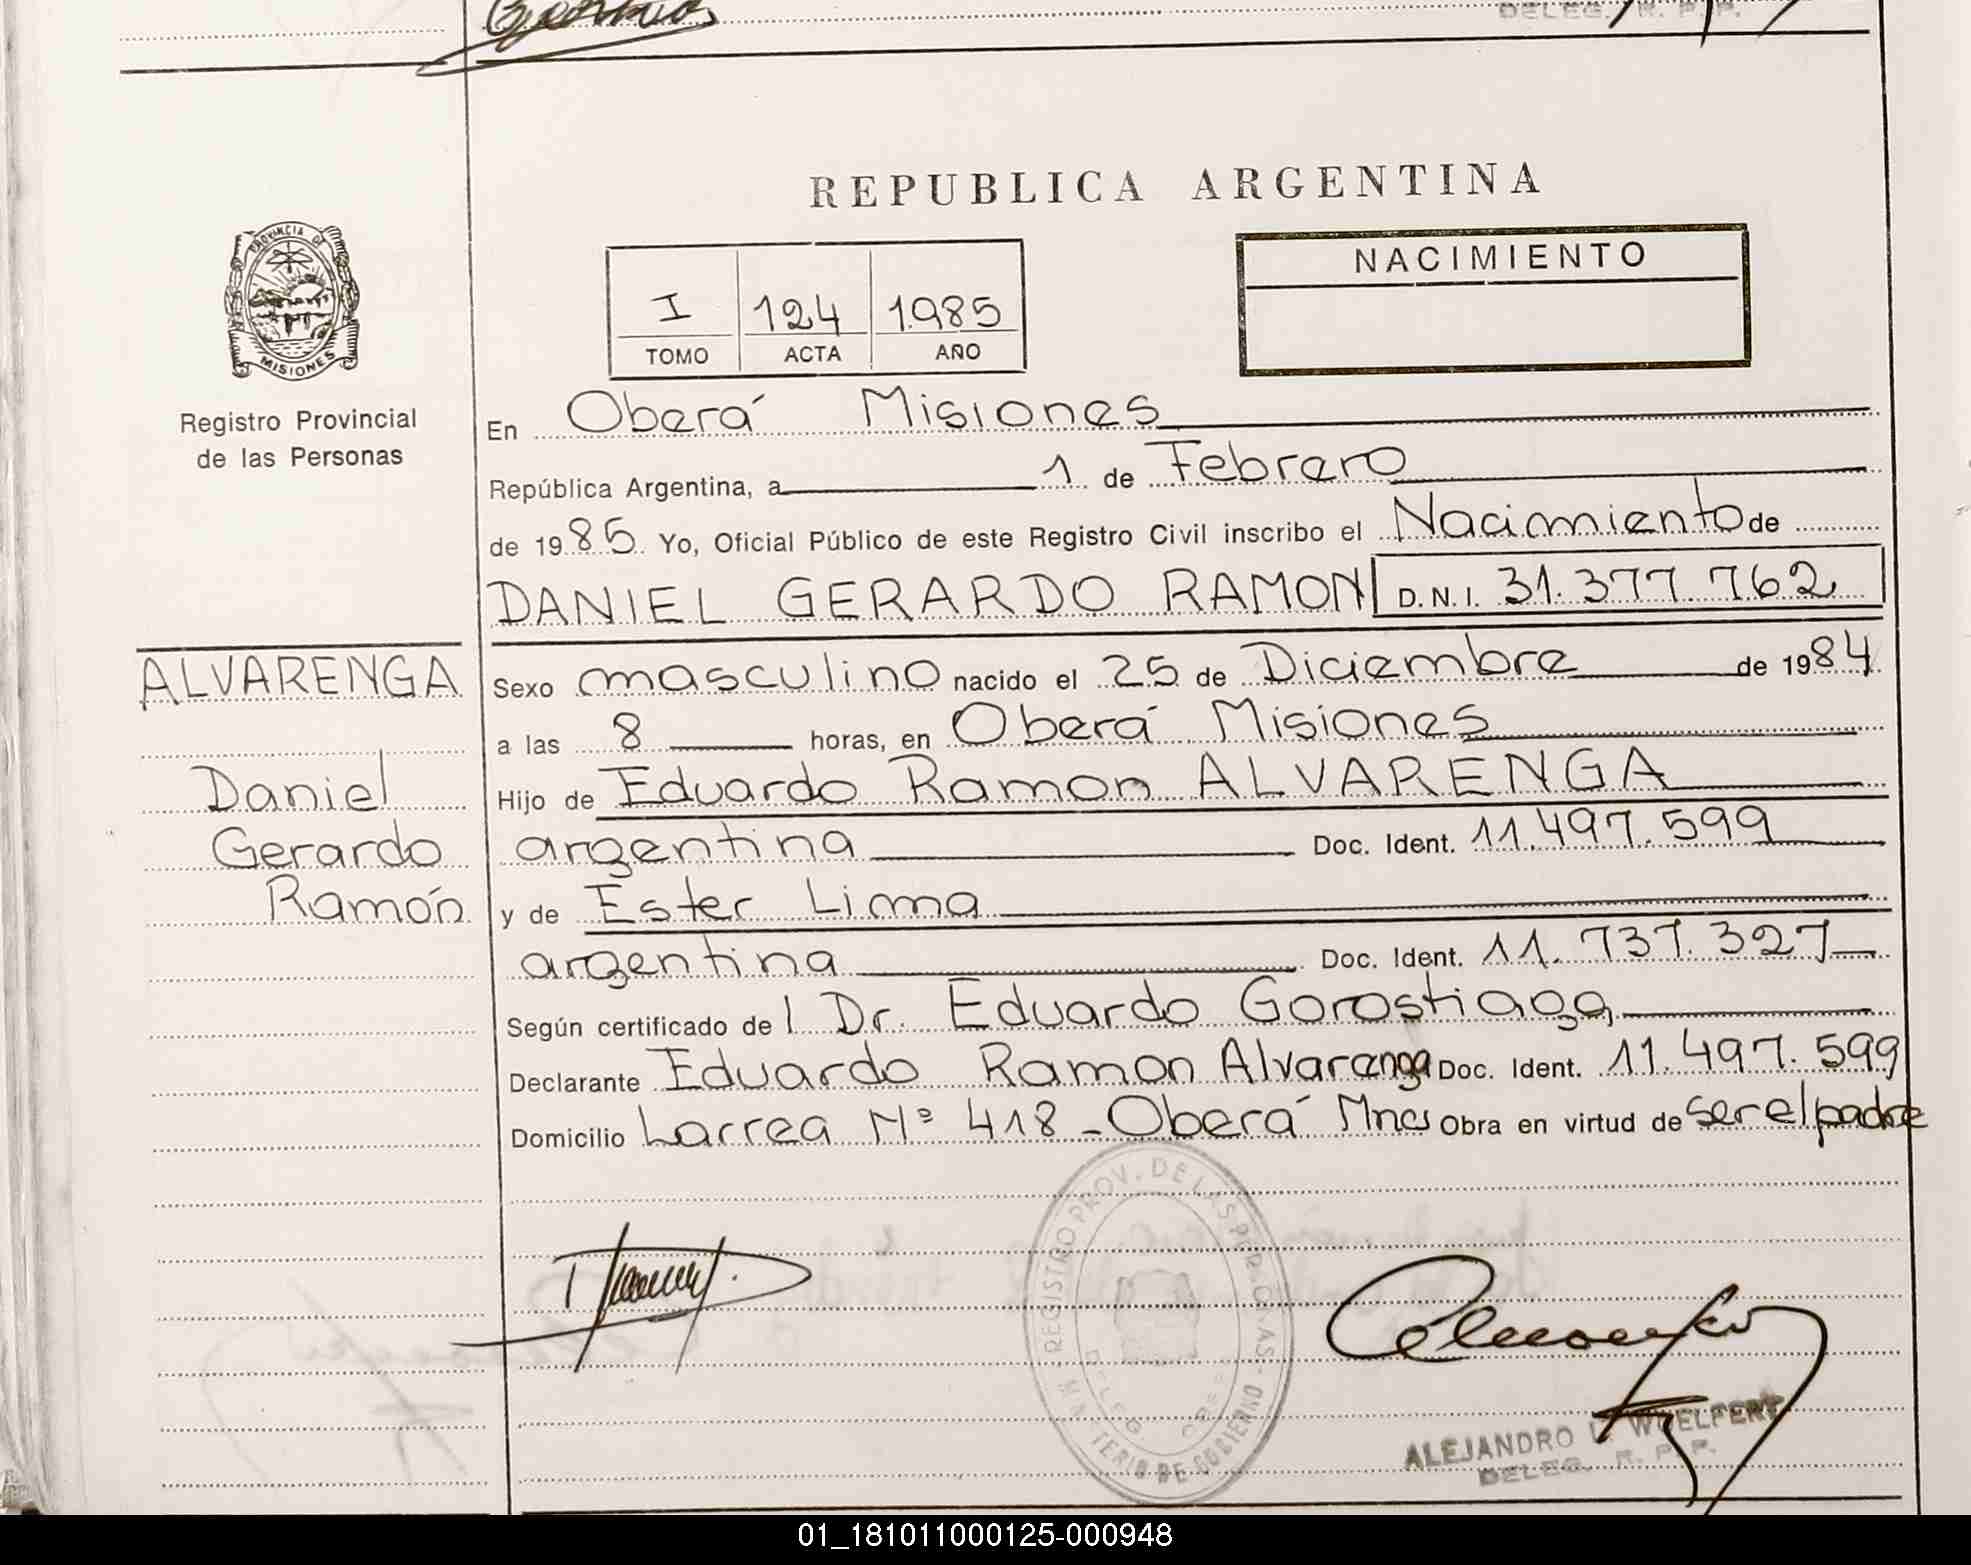 DELEG. R. P. P.
REPUBLICA ARGENTINA
PROVINCIA DE
MISIONES
Registro Provincial
de las Personas
I 124 1985
TOMO ACTA AÑO
NACIMIENTO
En Oberá Misiones
República Argentina, a 1 de Febrero
de 1985 Yo, Oficial Público de este Registro Civil inscribo el Nacimiento de
DANIEL GERARDO RAMON D.N.I. 31.377.762
ALVARENGA
Daniel
Gerardo
Ramón
Sexo masculino nacido el 25 de Diciembre de 1984
a las 8 horas, en Oberá Misiones
Hijo de Eduardo Ramon ALVARENGA
argentina Doc. Ident. 11.497.599
y de Ester Lima
argentina Doc. Ident. 11.737.327
Según certificado del Dr. Eduardo Gorostiaga
Declarante Eduardo Ramon Alvarenga Doc. Ident. 11.497.599
Domicilio Larrea Nº 418 - Oberá Mnes Obra en virtud de ser el padre
REGISTRO PROV. DE LAS PERSONAS
MINISTERIO DE GOBIERNO
ALEJANDRO L. WOELFERT
DELEG. R. P. P.
01_181011000125-000948